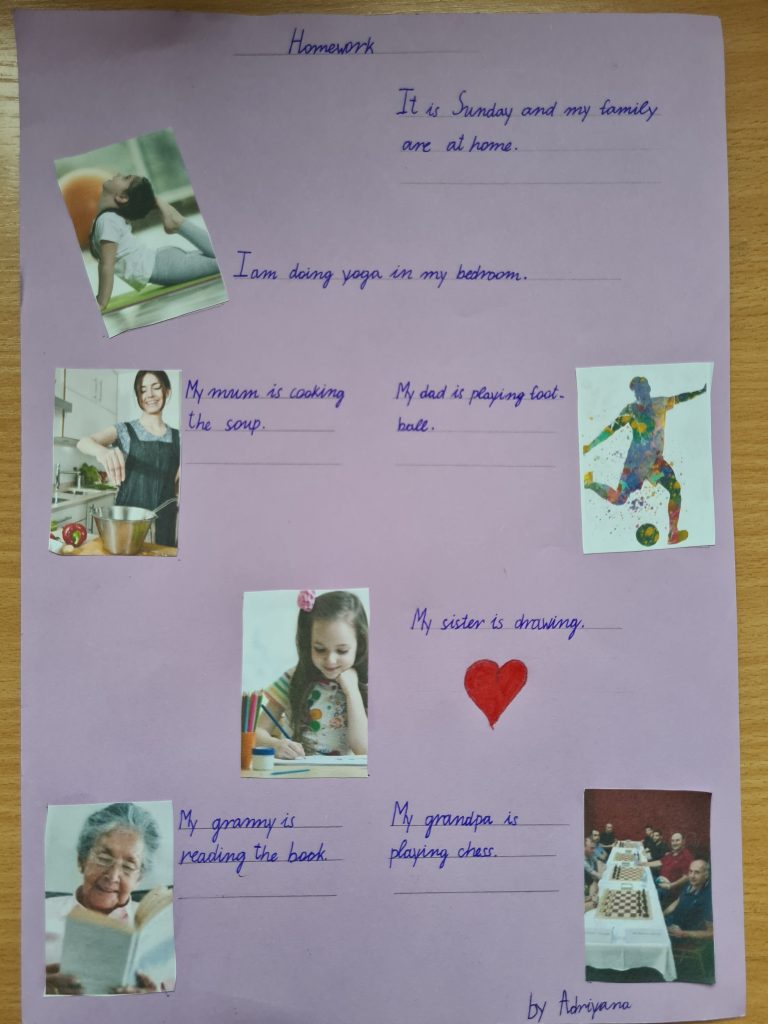 Homework
It is Sunday and my family
are at home.
I am doing yoga in my bedroom.
My mum is cooking
the soup.
My dad is playing foot-
ball.
My sister is drawing.
My granny is
reading the book.
My grandpa is
playing chess.
by Adriyana